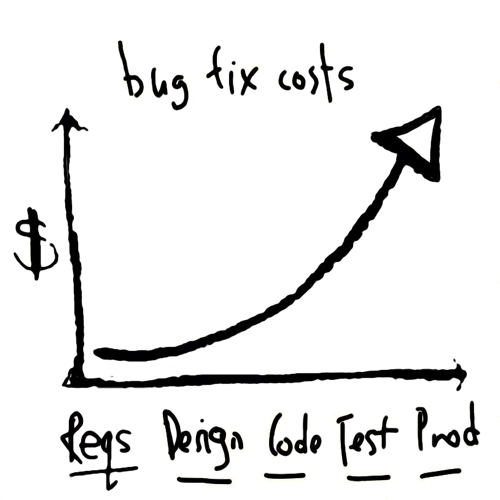 bug fix costs
$
Reqs Design Code Test Prod